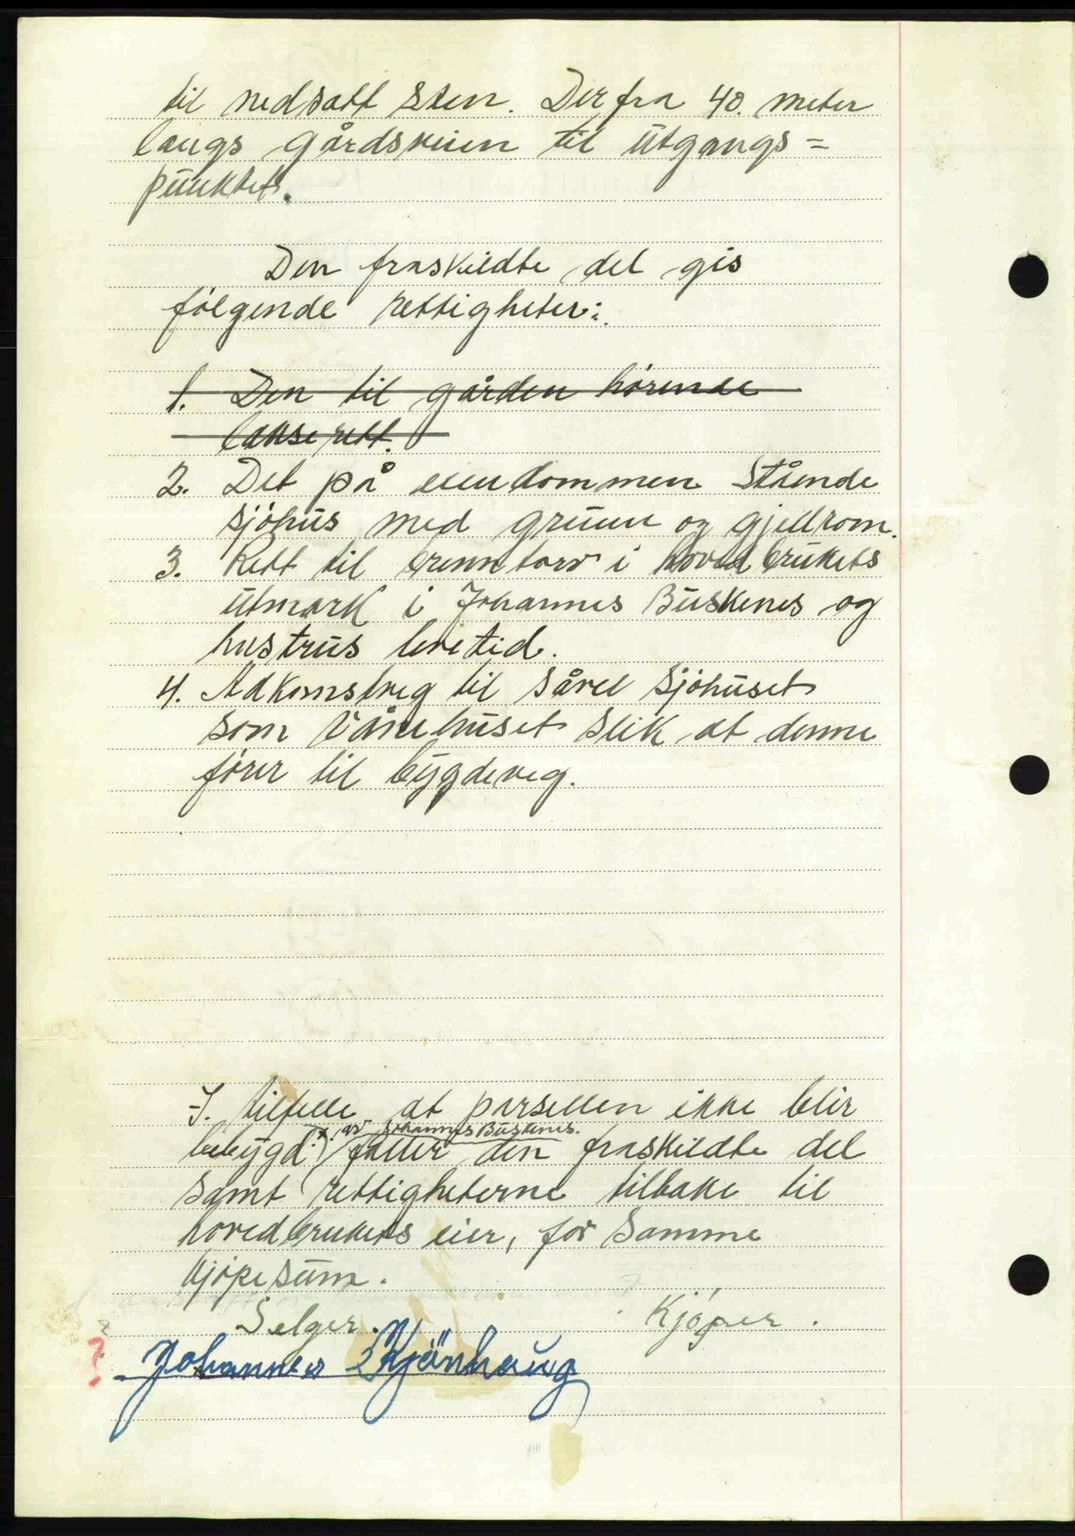 til nedsatt sten. Derfra 40. meter
langs gårdsveien til utgangs=
punktet.
Den fraskildte del gis
følgende rettigheter:
1. Den til gården hørende
lakserett.
2. Det på eiendommen stående
sjøhus med grunn og gjellrom.
3. Rett til brenntorv i hovedbrukets
utmark i Johannes Buskenes og
hustrus levetid.
4. Adkomstveg til såvel sjøhuset
som våningshuset slik at denne
fører til bygdeveg.
I tilfelle at parsellen ikke blir
av Johannes Buskenes.
bebygd faller den fraskildte del
samt rettigheterne tilbake til
hovedbrukets eier, for samme
kjøpesum.
Selger. Kjøper.
? Johannes Skjönhaug